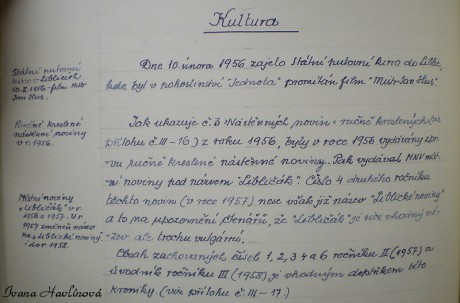 Kultura
Státní putovní
kino v Libčicích
10. II. 1956 - film Mistr
Jan Hus.
Dne 10. února 1956 zajelo Státní putovní kino do Libčic,
kde byl v pohostinství "Jednota" promítán film "Mistr Jan Hus".
Ručně kreslené
nástěnné noviny
v r. 1956.
Jak ukazuje č. 3 Nástěnných novin - ručně kreslených (viz
přílohu č. III - 16) z roku 1956, byly v roce 1956 vydávány
ručně kreslené nástěnné noviny. Pak vydával MNV míst-
ní noviny pod názvem "Libličák". Číslo 4 druhého ročníku
Místní noviny
"Libličák" v r.
1956 a 1957. V r.
1957 změněn název
na "Liblické noviny"
i do r. 1958.
těchto novin (v roce 1957) nese však již název "Liblické noviny"
a to na upozornění čtenářů, že "Libličák" je sice vhodný ná-
zev ale trochu vulgární.
Obsah zachovaných čísel 1, 2, 3, 4 a 6 ročníku II (1957) a
úvodník ročníku III (1958) je vhodným doplňkem této
kroniky. (viz přílohu č. III - 17.)
Ivana Havlínová